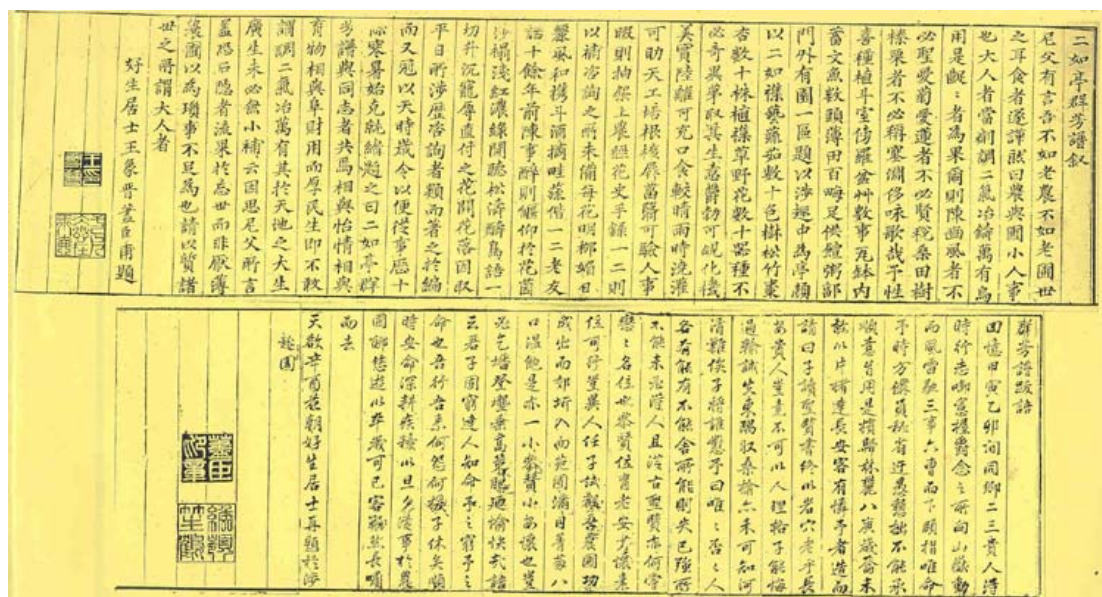 二如亭群芳譜叙
尼父有言吾不如老農不如老圃世
之耳食者遂謂農與圃小人事
也大人者當剸調二氣冶鑄萬有烏
用是齪齪者為果爾則陳豳風者不
必聖愛菊愛蓮者不必賢稅桑田樹
榛栗者不必稱塞淵侈咏歌哉予性
喜種植斗室傍羅盆草數事瓦缽內
蓄文魚數頭薄田百畮足供饘粥鄰
門外有園一區題以涉趣中為亭顏
以二如雜藝蔬茹數十色樹松竹棗
杏數十株植雜草野花數十器種不
必奇異第取其生意鬱勃可覘化機
美實陸離可充口食較晴雨時澆灌
可助天工培根核屏菑翳可驗人事
暇則抽架上農經花史手錄一二則
以補咨詢之所未備每花明柳媚日
麗風和攜斗酒摘畦蔬偕一二老友
話十餘年前陳事醉則偃仰於花茵
莎榻淺紅濃綠間聽松濤酬鳥語一
切升沉寵辱直付之花開花落因取
平日所涉歷咨詢者類而著之於編
而又冠以天時歲令以便從事歷十
餘寒暑始克就緒題之曰二如亭群
芳譜與同志者共焉相與怡情相與
育物相與阜財用而厚民生即不敢
謂調二氣冶萬有其於天地之大生
廣生未必無小補云因思尼父所言
蓋恐石隱者流果於忘世而非厭薄
農圃以為瑣事不足為也請以質諸
世之所謂大人者
好生居士王象晉藎臣甫題
群芳譜跋語
回憶甲寅乙卯間同鄉二三貴人得
時行志啣憲握爵念之所向山嶽動
而風雷馳三事六曹而下頤指唯命
予時方備員秘省迂愚戇拙不能承
順意旨用是擯歸林麓八寅歲籥未
敢以片楮達長安客有憐予者造而
請曰子讀聖賢書終以岩穴老乎長
安貴人豈盡不可以人理格子能悔
過輸誠失東隅收桑榆亦未可知河
清難俟子將誰懟予曰唯唯否否人
各有能有不能舍所能則失己強所
不能未必得人且從古聖賢亦何常
戀戀名位也
位可行豈異人任子試觀吾農圃功
成出而郊圻入而苑圃滿目菁葱八
口溫飽是亦一小參贊小安懷也豈
必乞墦登壟
云君子固窮達人知命予之窮予之
命也吾行吾素何怨何猴子休矣順
時安命深耕疾耰以旦夕從事於農
圃聊悠遊以卒歲可已客輾然長嘯
而去
天啟辛酉花朝好生居士再題於涉
趣園